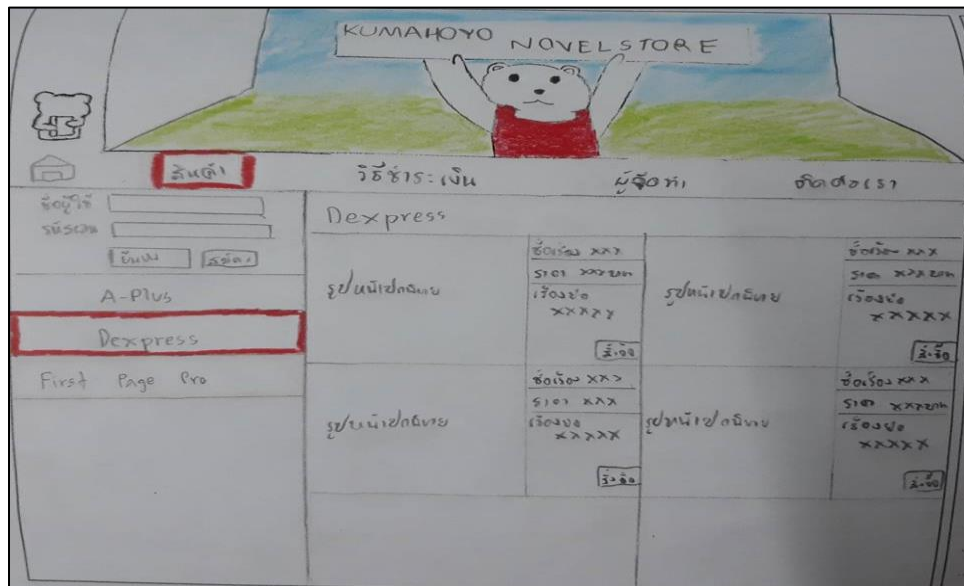 KUMAHOYO NOVELSTORE
สินค้า วิธีชำระเงิน ผู้จัดทำ ติดต่อเรา
ชื่อผู้ใช้
รหัสผ่าน
สมัคร
A-Plus
Dexpress
First Page Pro
Dexpress
รูปหน้าปกนิยาย
ชื่อเรื่อง xxx
ราคา xxx บาท
เรื่องย่อ
xxxxx
สั่งซื้อ
รูปหน้าปกนิยาย
ชื่อเรื่อง xxx
ราคา xxx บาท
เรื่องย่อ
xxxxx
สั่งซื้อ
รูปหน้าปกนิยาย
ชื่อเรื่อง xxx
ราคา xxx
เรื่องย่อ
xxxxx
สั่งซื้อ
รูปหน้าปกนิยาย
ชื่อเรื่อง xxx
ราคา xxxบาท
เรื่องย่อ
xxxxx
สั่งซื้อ